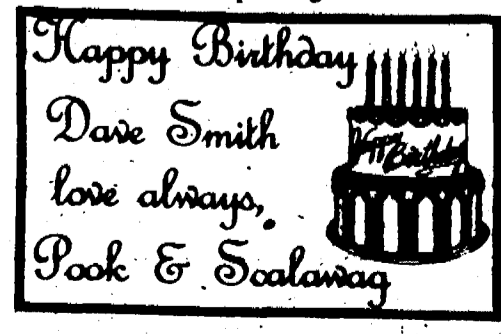 Happy Birthday
Dave Smith
love always,
Pook & Scalawag
Happy
Birthday